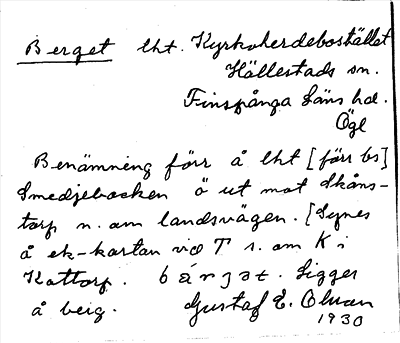 Berget lht. Kyrkoherdebostället
Hällestads sn.
Finspånga läns hd.
Ögl
Benämning förr å lht [förr bs]
Smedjebacken ö ut mot Skåns-
torp n. om landsvägen. [Synes
å ek-kartan vid T s. om K i
Kattorp. bärjet. Ligger
å berg. Gustaf E. Olman
1930